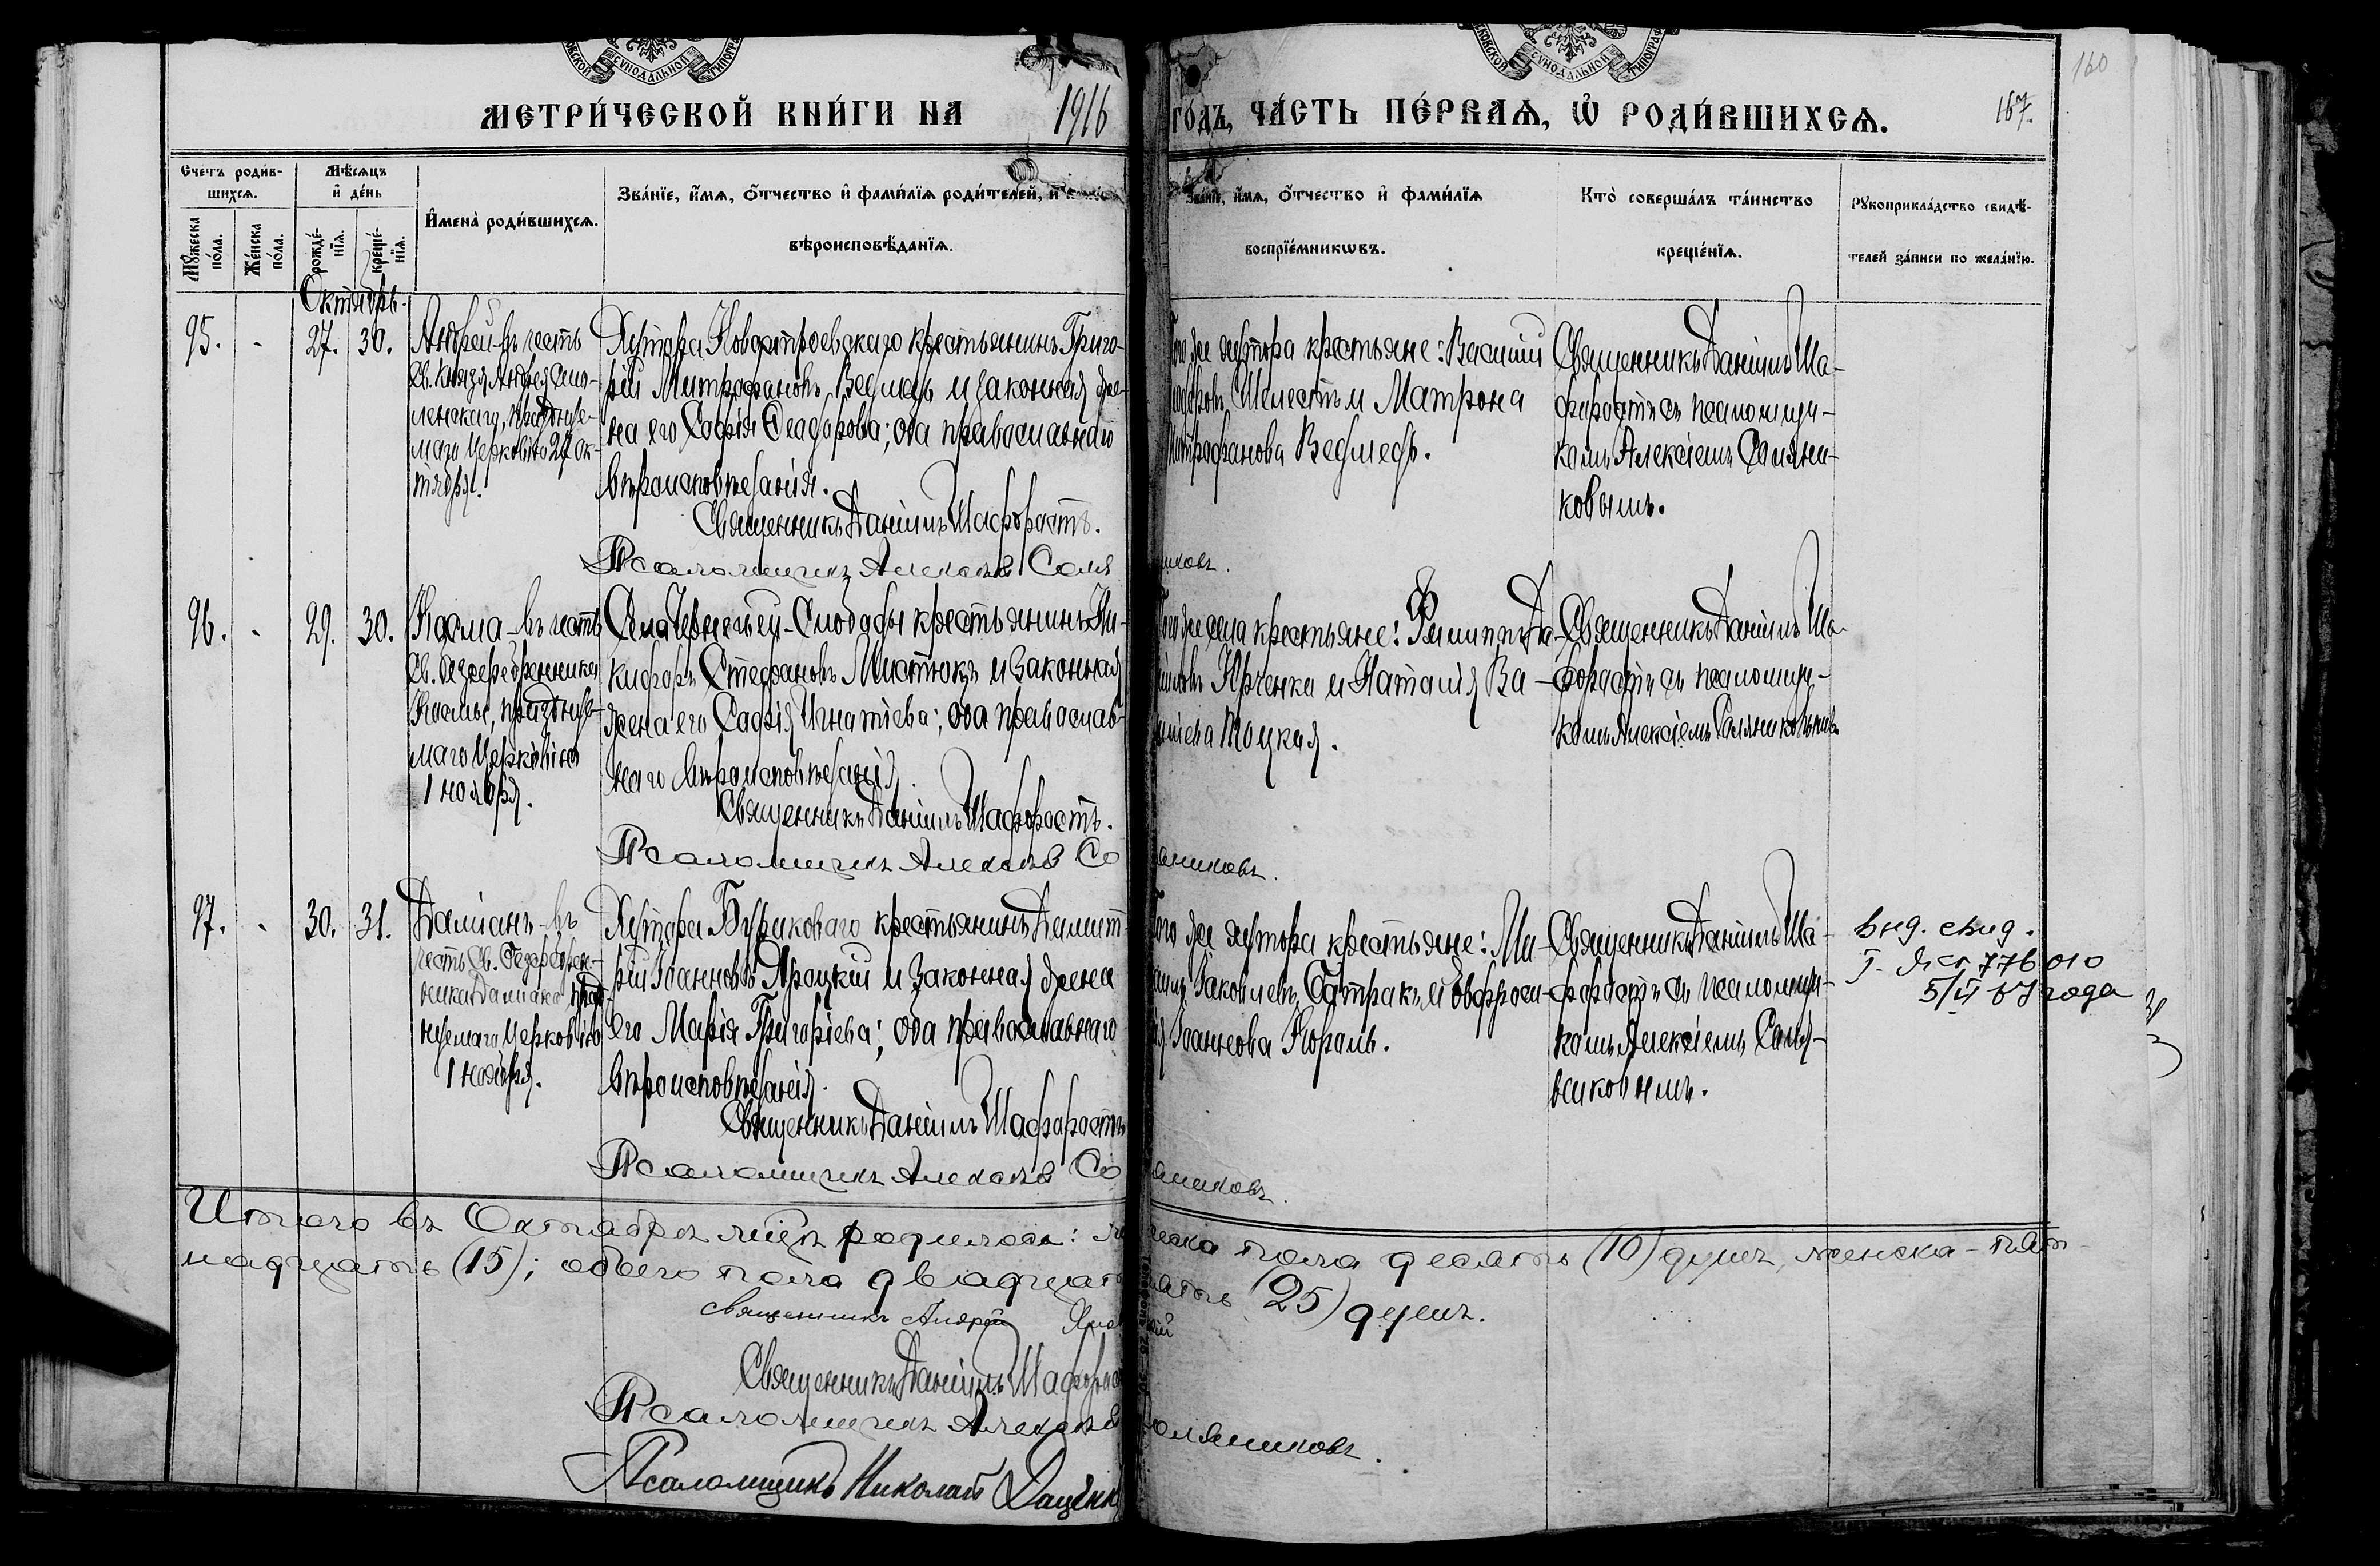 МЕТРИ́ЧЕСКОЙ КНИ́ГИ НА 1916 ГО́ДЪ, ЧА́СТЬ ПЕ́РВАѦ, Ѡ҆ РОДИ́ВШИХСѦ.
160
167.
Счетъ роди́в-
шихсѧ.
Мꙋжеска
по́ла.
Же́нска
по́ла.
Мѣ́сяцъ
и҆ де́нь
рожде́-
нїѧ.
креще́-
нїѧ.
И҆мена̀ роди́вшихсѧ.
Зва́нїе, и҆́мѧ, ѻ҆́тчество и҆ фами́лїѧ роди́телей, и҆
вѣроисповѣ́данїѧ.
Зва́нїе, и҆́мѧ, ѻ҆́тчество и҆ фами́лїѧ
воспрїе́мникѡвъ.
Кто̀ соверша́лъ та́инство
креще́нїѧ.
Рꙋкоприкла́дство свидѣ́-
телей за́писи по жела́нїю.
Октябрь.
95. - 27. 30.
Андрей въ честь
Св. Князя Андрея Смо-
ленскаго, празднуе-
маго Церковію 27 ок-
тября.
Хутора Новостроевскаго крестьянинъ Григо-
рій Митрофановъ Ведмедь и законная же-
на его Софія Феодорова; оба православнаго
вѣроисповѣданія.
Священникъ Даніилъ Шафорастъ.
Псаломщикъ Алексѣй Соляниковъ.
Того же хутора крестьяне: Василій
Шелестъ и Матрона
Митрофанова Ведмедь.
Священникъ Даніилъ Ша-
форастъ съ псаломщи-
комъ Алексіемъ Соляни-
ковымъ.
96. - 29. 30.
Косма - въ честь
Св. безсребренника
Космы, празднуе-
маго Церковію
1 ноября.
Села Слободы крестьянинъ Ни-
кифоръ Стефановъ и законная
жена его Софія Игнатіева; оба православ-
наго вѣроисповѣданія.
Священникъ Даніилъ Шафорастъ.
Псаломщикъ Алексѣй Соляниковъ.
Того же села крестьяне: Филиппъ Да-
ниловъ Юрченко и Наталія Ва-
силіева Троцкая.
Священникъ Даніилъ Ша-
форастъ съ псаломщи-
комъ Алексіемъ Соляниковымъ
97. - 30. 31.
Даміанъ - въ
честь Св. безсребрен-
ника Даміана, празд-
нуемаго Церковію
1 ноября.
Хутора Буриковаго крестьянинъ Димит-
рій Іоанновъ Яроцкій и законная жена
его Марія Григоріева; оба православнаго
вѣроисповѣданія.
Священникъ Даніилъ Шафорастъ
Псаломщикъ Алексѣй Соляниковъ.
Того же хутора крестьяне: Ми-
хаилъ Іаковлевъ и Евфроси-
нія Іоаннова Король.
Священникъ Даніилъ Ша-
форастъ съ псаломщи-
комъ Алексіемъ Соля-
никовымъ.
выд. свид.
776010
5/II 67 года
Итого въ Октябрѣ мцѣ родилось: мужеска пола десять (10) душъ, женска - пят-
надцать (15); обоего пола двадцать пять (25) душъ.
Священникъ Андрей
Священникъ Даніилъ Шафорастъ
Псаломщикъ Алексѣй Соляниковъ.
Псаломщикъ Николай Даценк